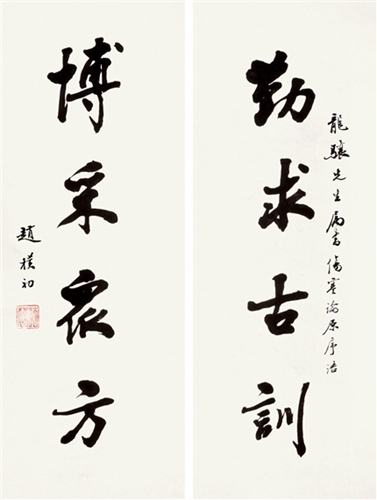 勤求古訓
龍驤先生屬書傷寒論原序語
博采眾方
趙樸初